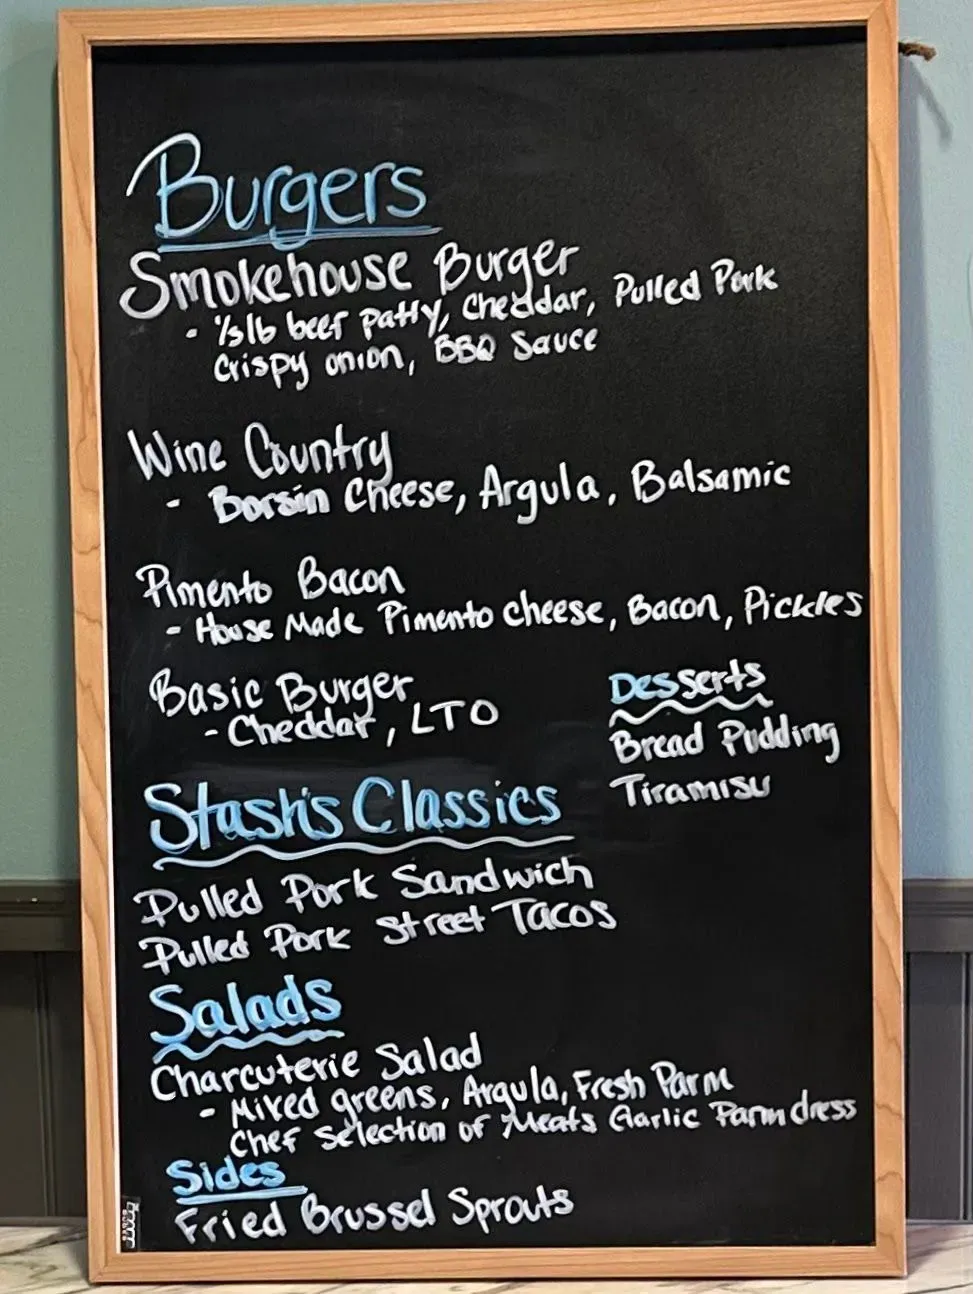 Burgers
Smokehouse Burger
- 1/3 lb beef patty, Cheddar, Pulled Pork
Crispy onion, BBQ Sauce
Wine Country
- Borsin Cheese, Argula, Balsamic
Pimento Bacon
- House Made Pimento cheese, Bacon, Pickles
Basic Burger
- Cheddar, LTO
Desserts
Bread Pudding
Tiramisu
Stash's Classics
Pulled Pork Sandwich
Pulled Pork Street Tacos
Salads
Charcuterie Salad
- Mixed greens, Argula, Fresh Parm
Chef Selection of Meats Garlic Parm dress
Sides
Fried Brussel Sprouts